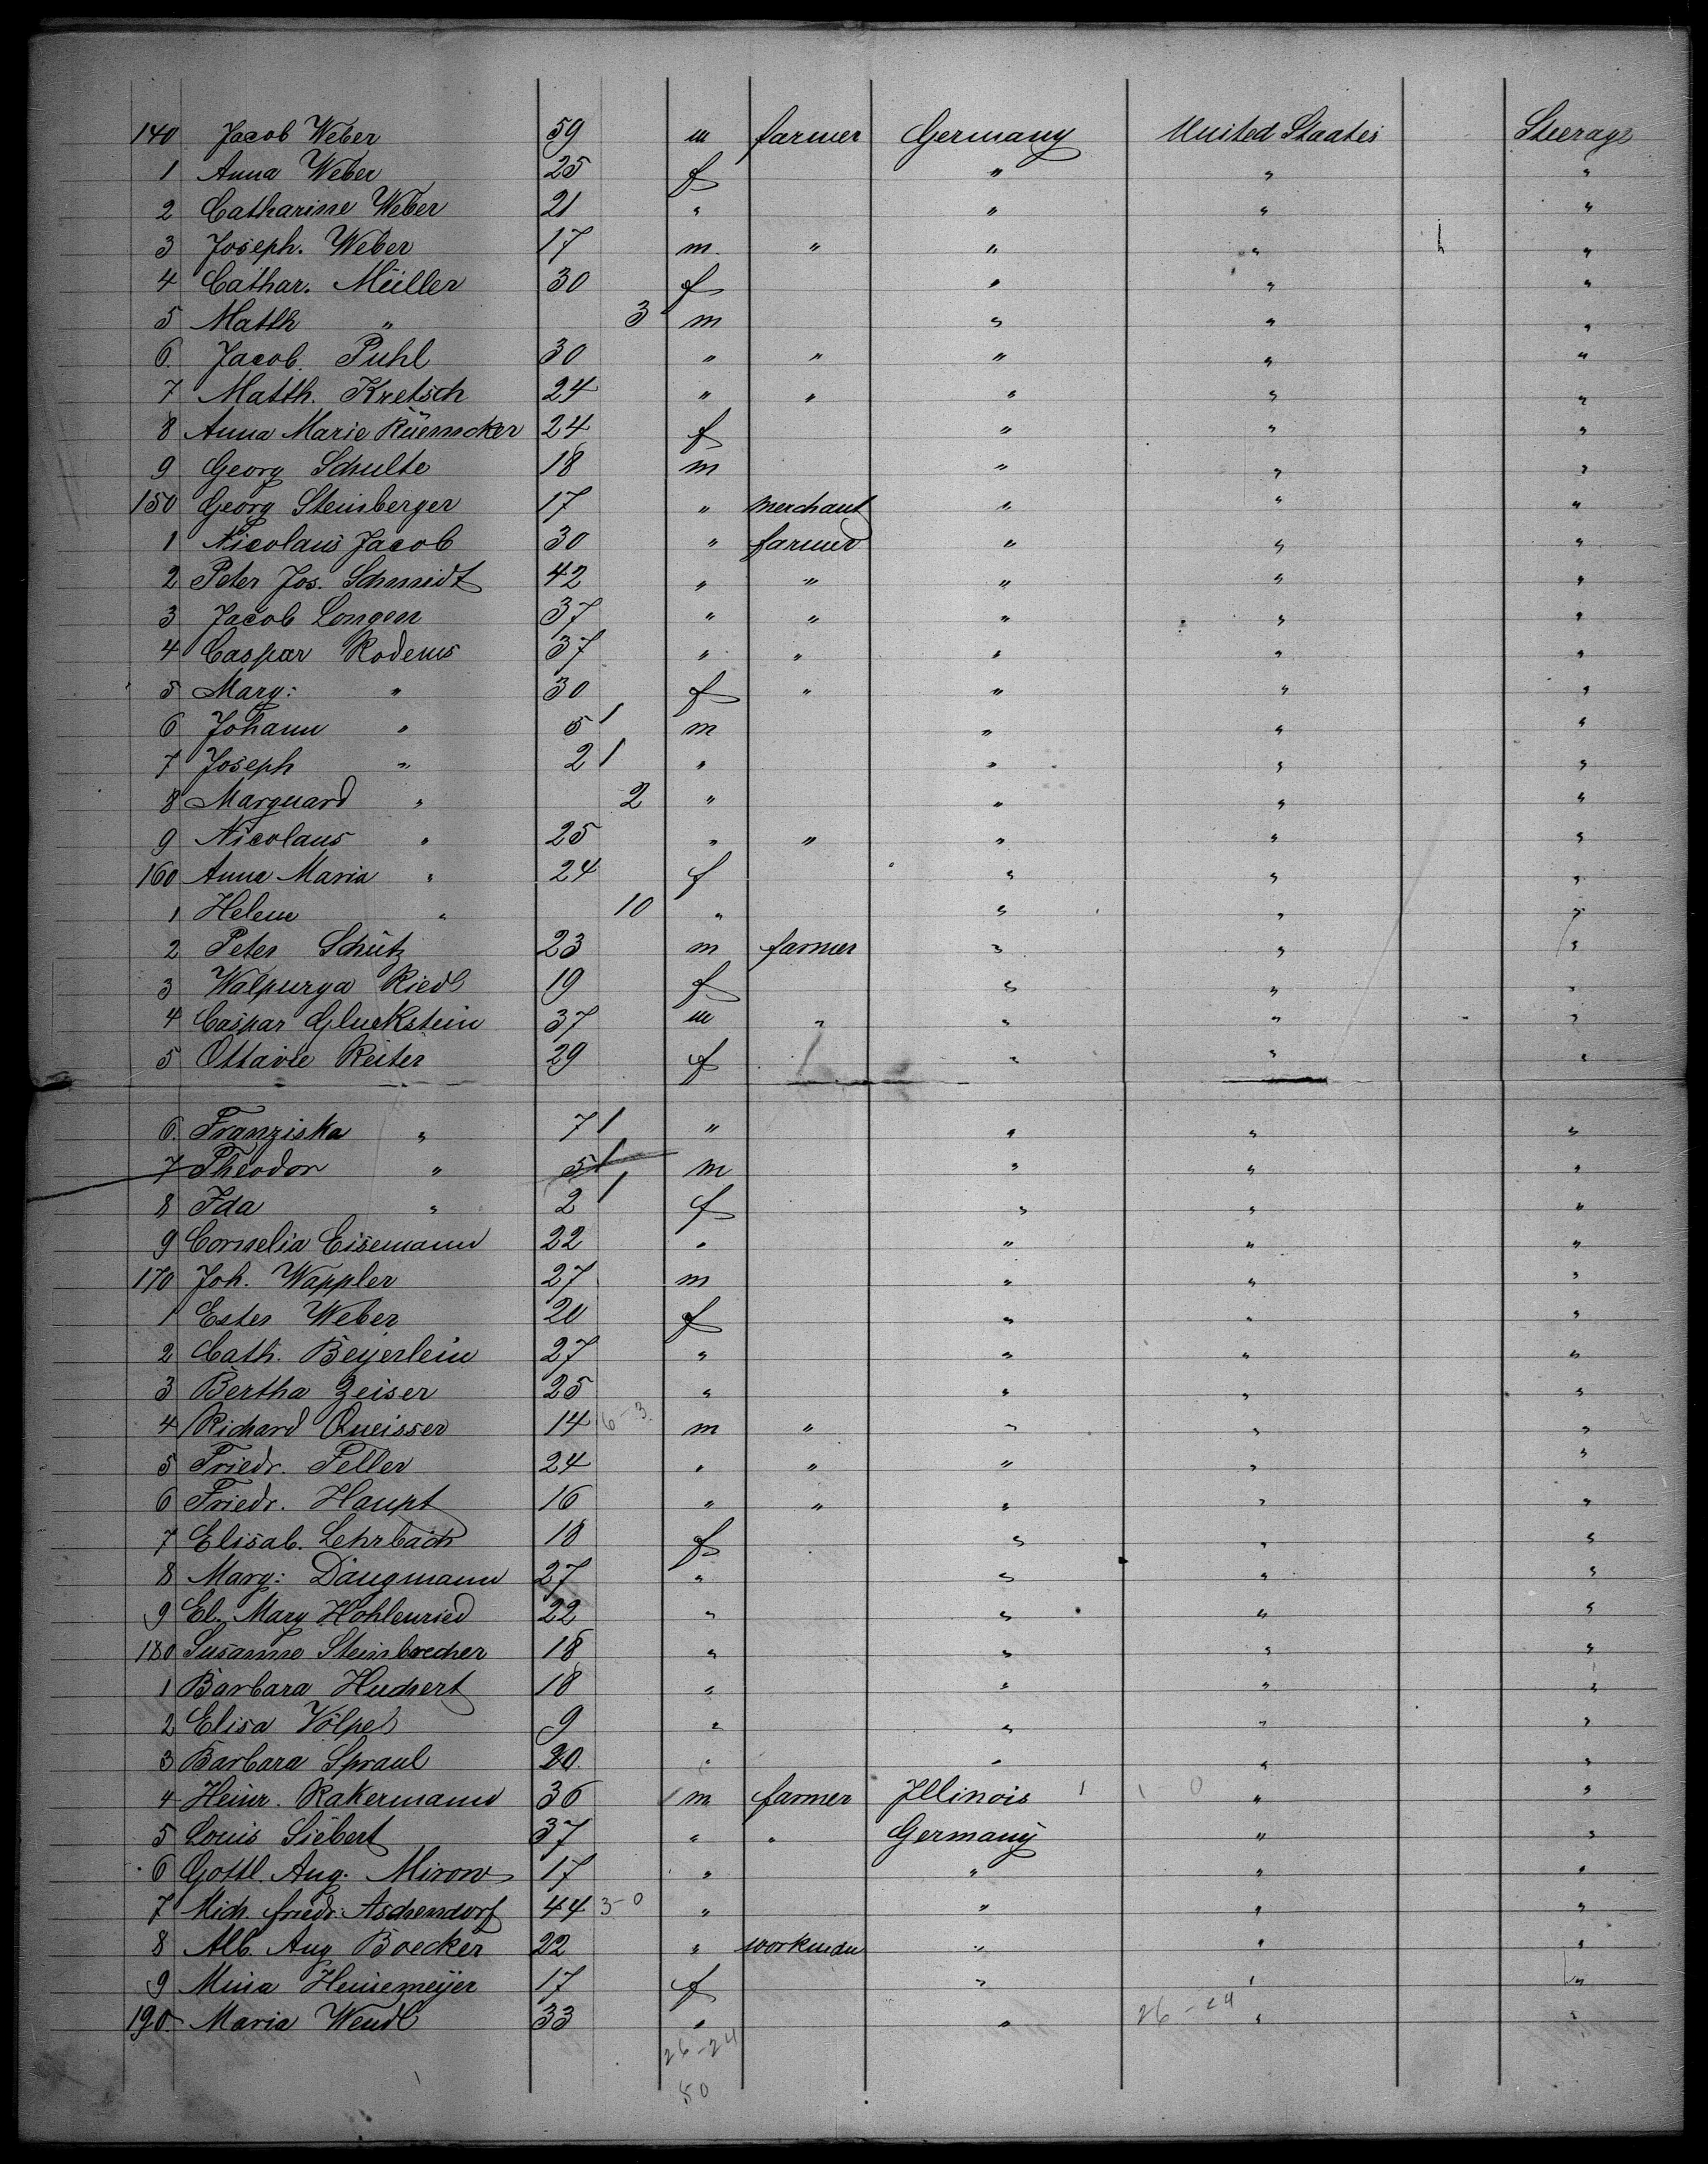 140 Jacob Weber 59 m farmer Germany United Staates Steerage
1 Anna Weber 25 f " " "
2 Catharine Weber 21 " " " "
3 Joseph. Weber 17 m. " " " "
4 Cathar. Müller 30 f " " "
5 Matth " 3 m " " "
6. Jacob. Puhl 30 " " " " "
7 Matth. Kretsch 24 " " " " "
8 Anna Marie 24 f " " "
9 Georg Schulte 18 m " " "
150 Georg Steinberger 17 " merchant " " "
1 Nicolaus Jacob 30 " farmer " " "
2 Peter Jos. Schmidt 42 " " " " "
3 Jacob Longen 37 " " " " "
4 Caspar Rodens 37 " " " " "
5 Marg: " 30 f " " " "
6 Johann " 5 / m " " "
7 Joseph " 2 / " " " "
8 Marquard " 2 " " " "
9 Nicolaus " 25 " " " " "
160 Anna Maria " 24 f " " "
1 Helene " 10 " " " "
2 Peter Schütz 23 m farmer " " "
3 Walpurga Riedl 19 f " " "
4 Caspar Gluckstein 37 m " " " "
5 Ottavie Reiter 29 f " " "
6. Franziska " 7 / " " " "
7 Theodor " 5 / m " " "
8 Ida " 2 / f " " "
9 Cornelia Eisemann 22 " " " "
170 Joh. Wappler 27 m " " "
1 Ester Weber 20 f " " "
2 Cath. Beyerlein 27 " " " "
3 Bertha Zeiser 25 " " " "
4 Richard Queisser 14 6-3 m " " " "
5 Friedr. Feller 24 " " " " "
6 Friedr. Haupt 16 " " " " "
7 Elisab. Lehrbach 18 f " " "
8 Marg: Daugmann 27 " " " "
9 El. Marg Hohlenried 22 " " " "
180 Susanne Steinbrecher 18 " " " "
1 Barbara Huchert 18 " " " "
2 Elisa Völpel 9 " " " "
3 Barbara Spraul 20. " " " "
4 Heinr. Rakermann 36 m farmer Illinois 1 1-0 " "
5 Louis Siebert 37 " " Germany " "
6 Gottl. Aug. Mirow 17 " " " "
7 Mich. friedr: Aschendorf 44 3-0 " " " "
8 Alb. Aug Boecker 22 " workman " " "
9 Mina Heinemeyer 17 f " " "
190. Maria Wendl 33 " " 26-24 " "
26-24
50